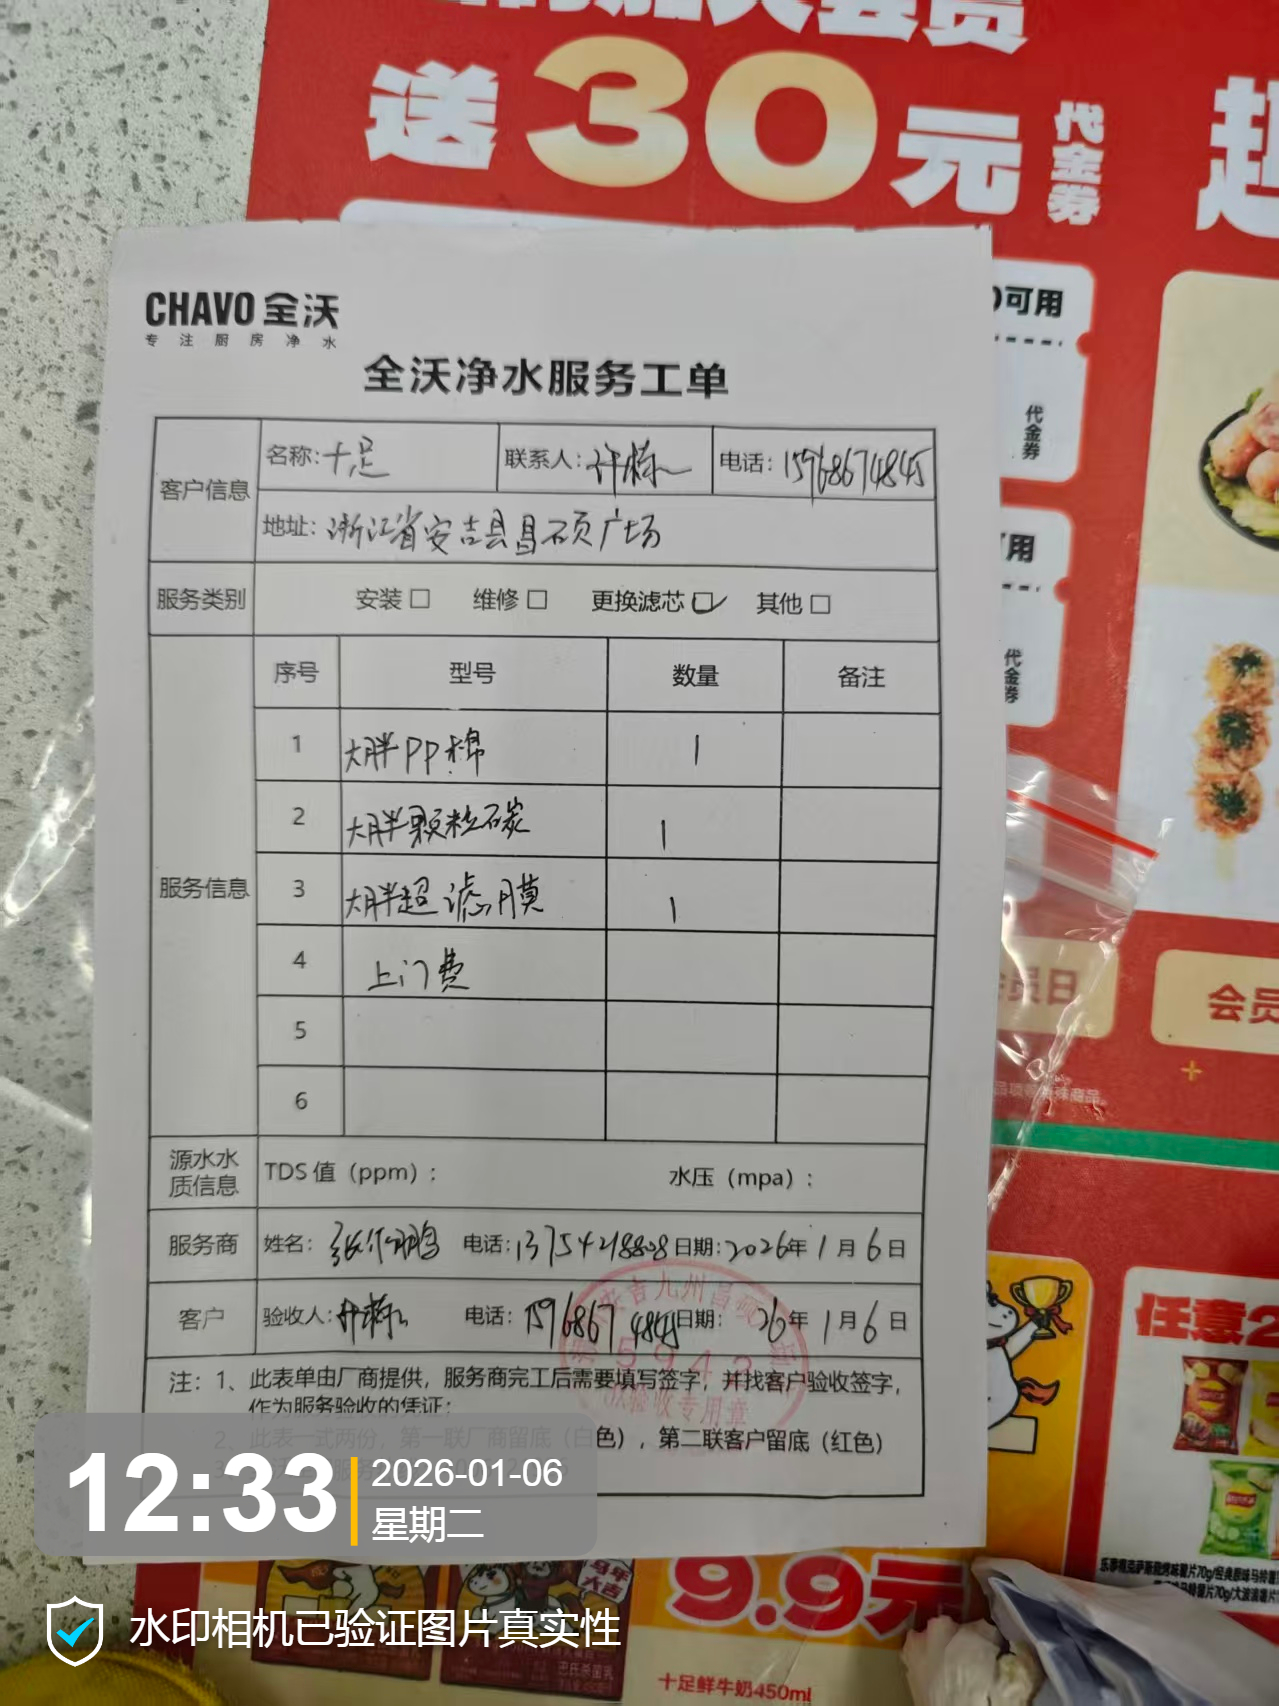 送30元代金券
可用
代金券
可用
代金券
CHAVO 全沃
专注厨房净水
全沃净水服务工单
客户信息 名称:十足 联系人:许栋 电话:15968674845
地址:浙江省安吉县昌硕广场
服务类别 安装□ 维修□ 更换滤芯☑ 其他□
服务信息 序号 型号 数量 备注
1 大胖PP棉 1
2 大胖颗粒碳 1
3 大胖超滤膜 1
4 上门费
5
6
源水水质信息 TDS 值(ppm): 水压(mpa):
服务商 姓名: 电话:13754218808 日期:2026年1月6日
客户 验收人:许栋 电话:15968674845 日期:26年1月6日
安吉九州昌硕
5943
验收专用章
注:1、此表单由厂商提供,服务商完工后需要填写签字,并找客户验收签字,
作为服务验收的凭证;
2、此表一式两份,第一联厂商留底(白色),第二联客户留底(红色)
会员日
会员
任意2
12:33
2026-01-06
星期二
水印相机已验证图片真实性
9.9元
十足鲜牛奶450ml
马年大吉